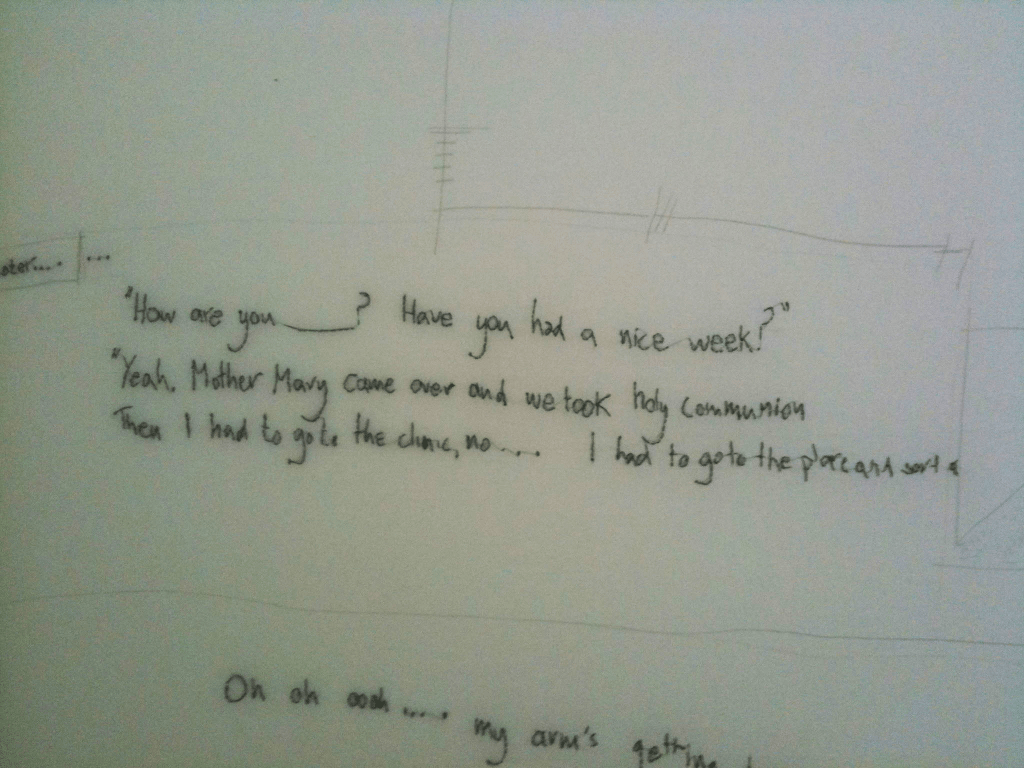 ...
"How are you ______? Have you had a nice week?"
"Yeah, Mother Mary came over and we took holy communion
Then I had to go to the clinic, no.... I had to go to the place and sort a
Oh oh oooh..... my arm's getting